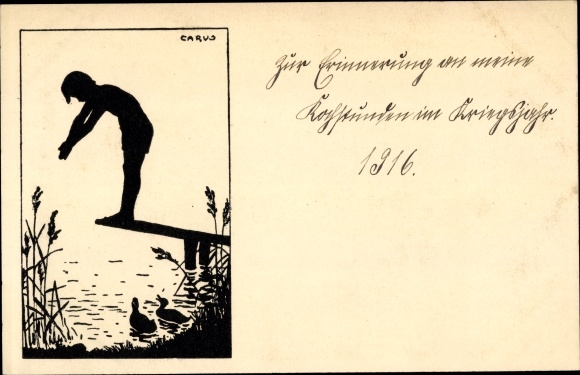 CARUS
Zur Erinnerung an meine
Kochstunden im Kriegsjahr.
1916.